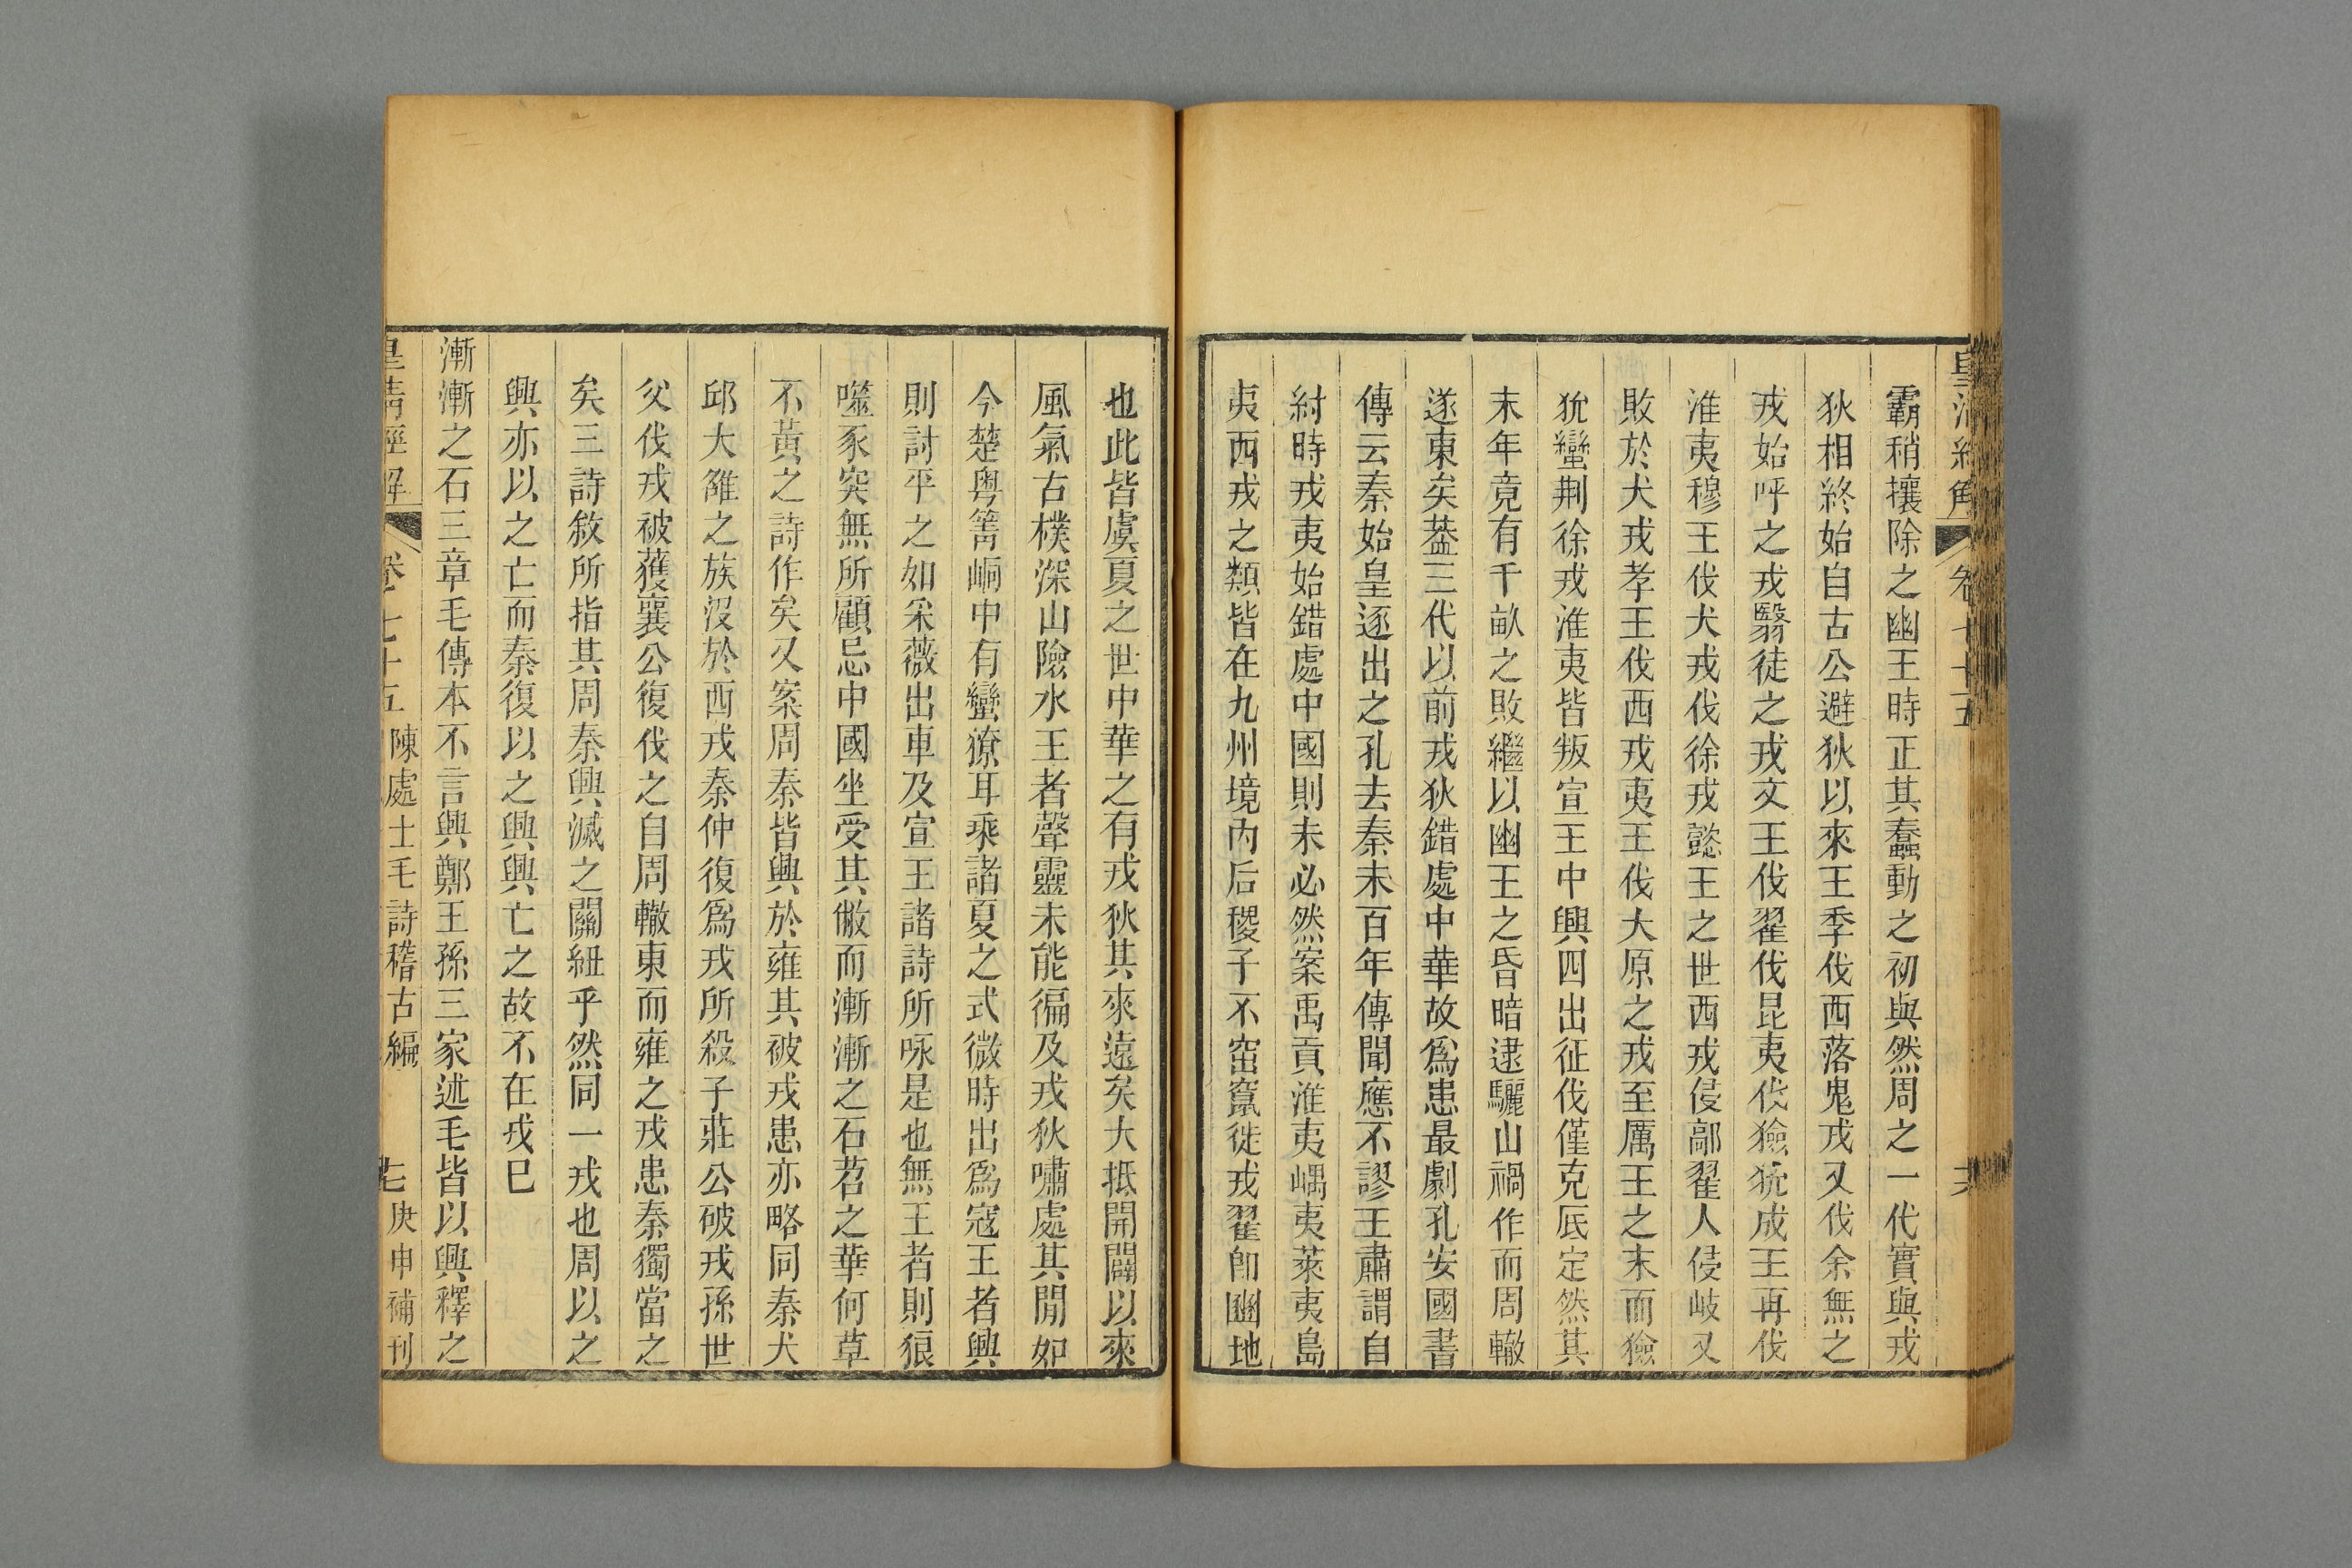 霸稍攘除之幽王時正其蠢動之初與然周之一代實與戎
狄相終始自古公避狄以來王季伐西落鬼戎又伐余無之
戎始呼之戎翳徒之戎文王伐翟伐昆夷伐獫狁成王再伐
淮夷穆王伐犬戎伐徐戎懿王之世西戎侵鄗翟人侵岐又
敗於犬戎孝王伐西戎夷王伐大原之戎至厲王之末而獫
狁蠻荆徐戎淮夷皆叛宣王中興四出征伐僅克厎定然其
末年竟有千畝之敗繼以幽王之昏暗逮驪山禍作而周轍
遂東矣葢三代以前戎狄錯處中華故爲患最劇孔安國書
傳云秦始皇逐出之孔去秦未百年傳聞應不謬王肅謂自
紂時戎夷始錯處中國則未必然案禹貢淮夷嵎夷萊夷島
夷西戎之類皆在九州境內后稷子不窋竄徙戎翟卽豳地
也此皆虞夏之世中華之有戎狄其來遠矣大抵開闢以來
風氣古樸深山險水王者聲靈未能徧及戎狄嘯處其閒如
今楚粵箐峒中有蠻獠耳乘諸夏之式微時出爲寇王者興
則討平之如采薇出車及宣王諸詩所咏是也無王者則狼
噬豕突無所顧忌中國坐受其敝而漸漸之石苕之華何草
不黃之詩作矣又案周秦皆興於雍其被戎患亦略同秦犬
邱大雒之族沒於西戎秦仲復爲戎所殺子莊公破戎孫世
父伐戎被獲襄公復伐之自周轍東而雍之戎患秦獨當之
矣三詩敘所指其周秦興滅之關紐乎然同一戎也周以之
興亦以之亡而秦復以之興興亡之故不在戎巳
漸漸之石三章毛傳本不言興鄭王孫三家述毛皆以興釋之
皇清經解 卷七十五 陳處士毛詩稽古編 七 庚申補刊